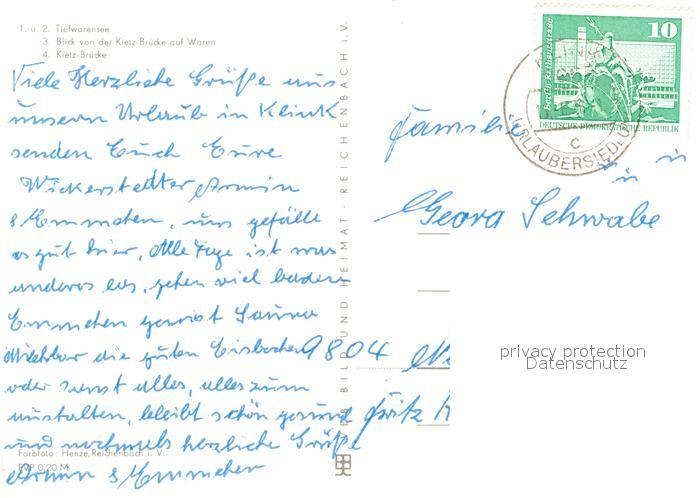 1. u. 2. Tiefwarensee
3. Blick von der Kietz-Brücke auf Waren
4. Kietz-Brücke
Viele Herzliche Grüße aus
unserm Urlaub in Klink
senden Euch Eure
Wickerstedter Armin
& Emmchen, uns gefällt
es gut hier, Alle Tage ist was
anderes los, gehen viel baden
Emmchen Sauna
die guten Eisbecher
oder sonst alles, alles zum
aushalten, bleibt schön gesund
und nochmals herzliche Grüße
Armin & Emmchen
Farbfoto: Henze, Reichenbach i. V.
EVP 0,20 M
BILD UND HEIMAT · REICHENBACH I. V.
10
DEUTSCHE DEMOKRATISCHE REPUBLIK
C
URLAUBERSIEDLU
Familie
Georg Schwabe
9804
Fritz
privacy protection
Datenschutz